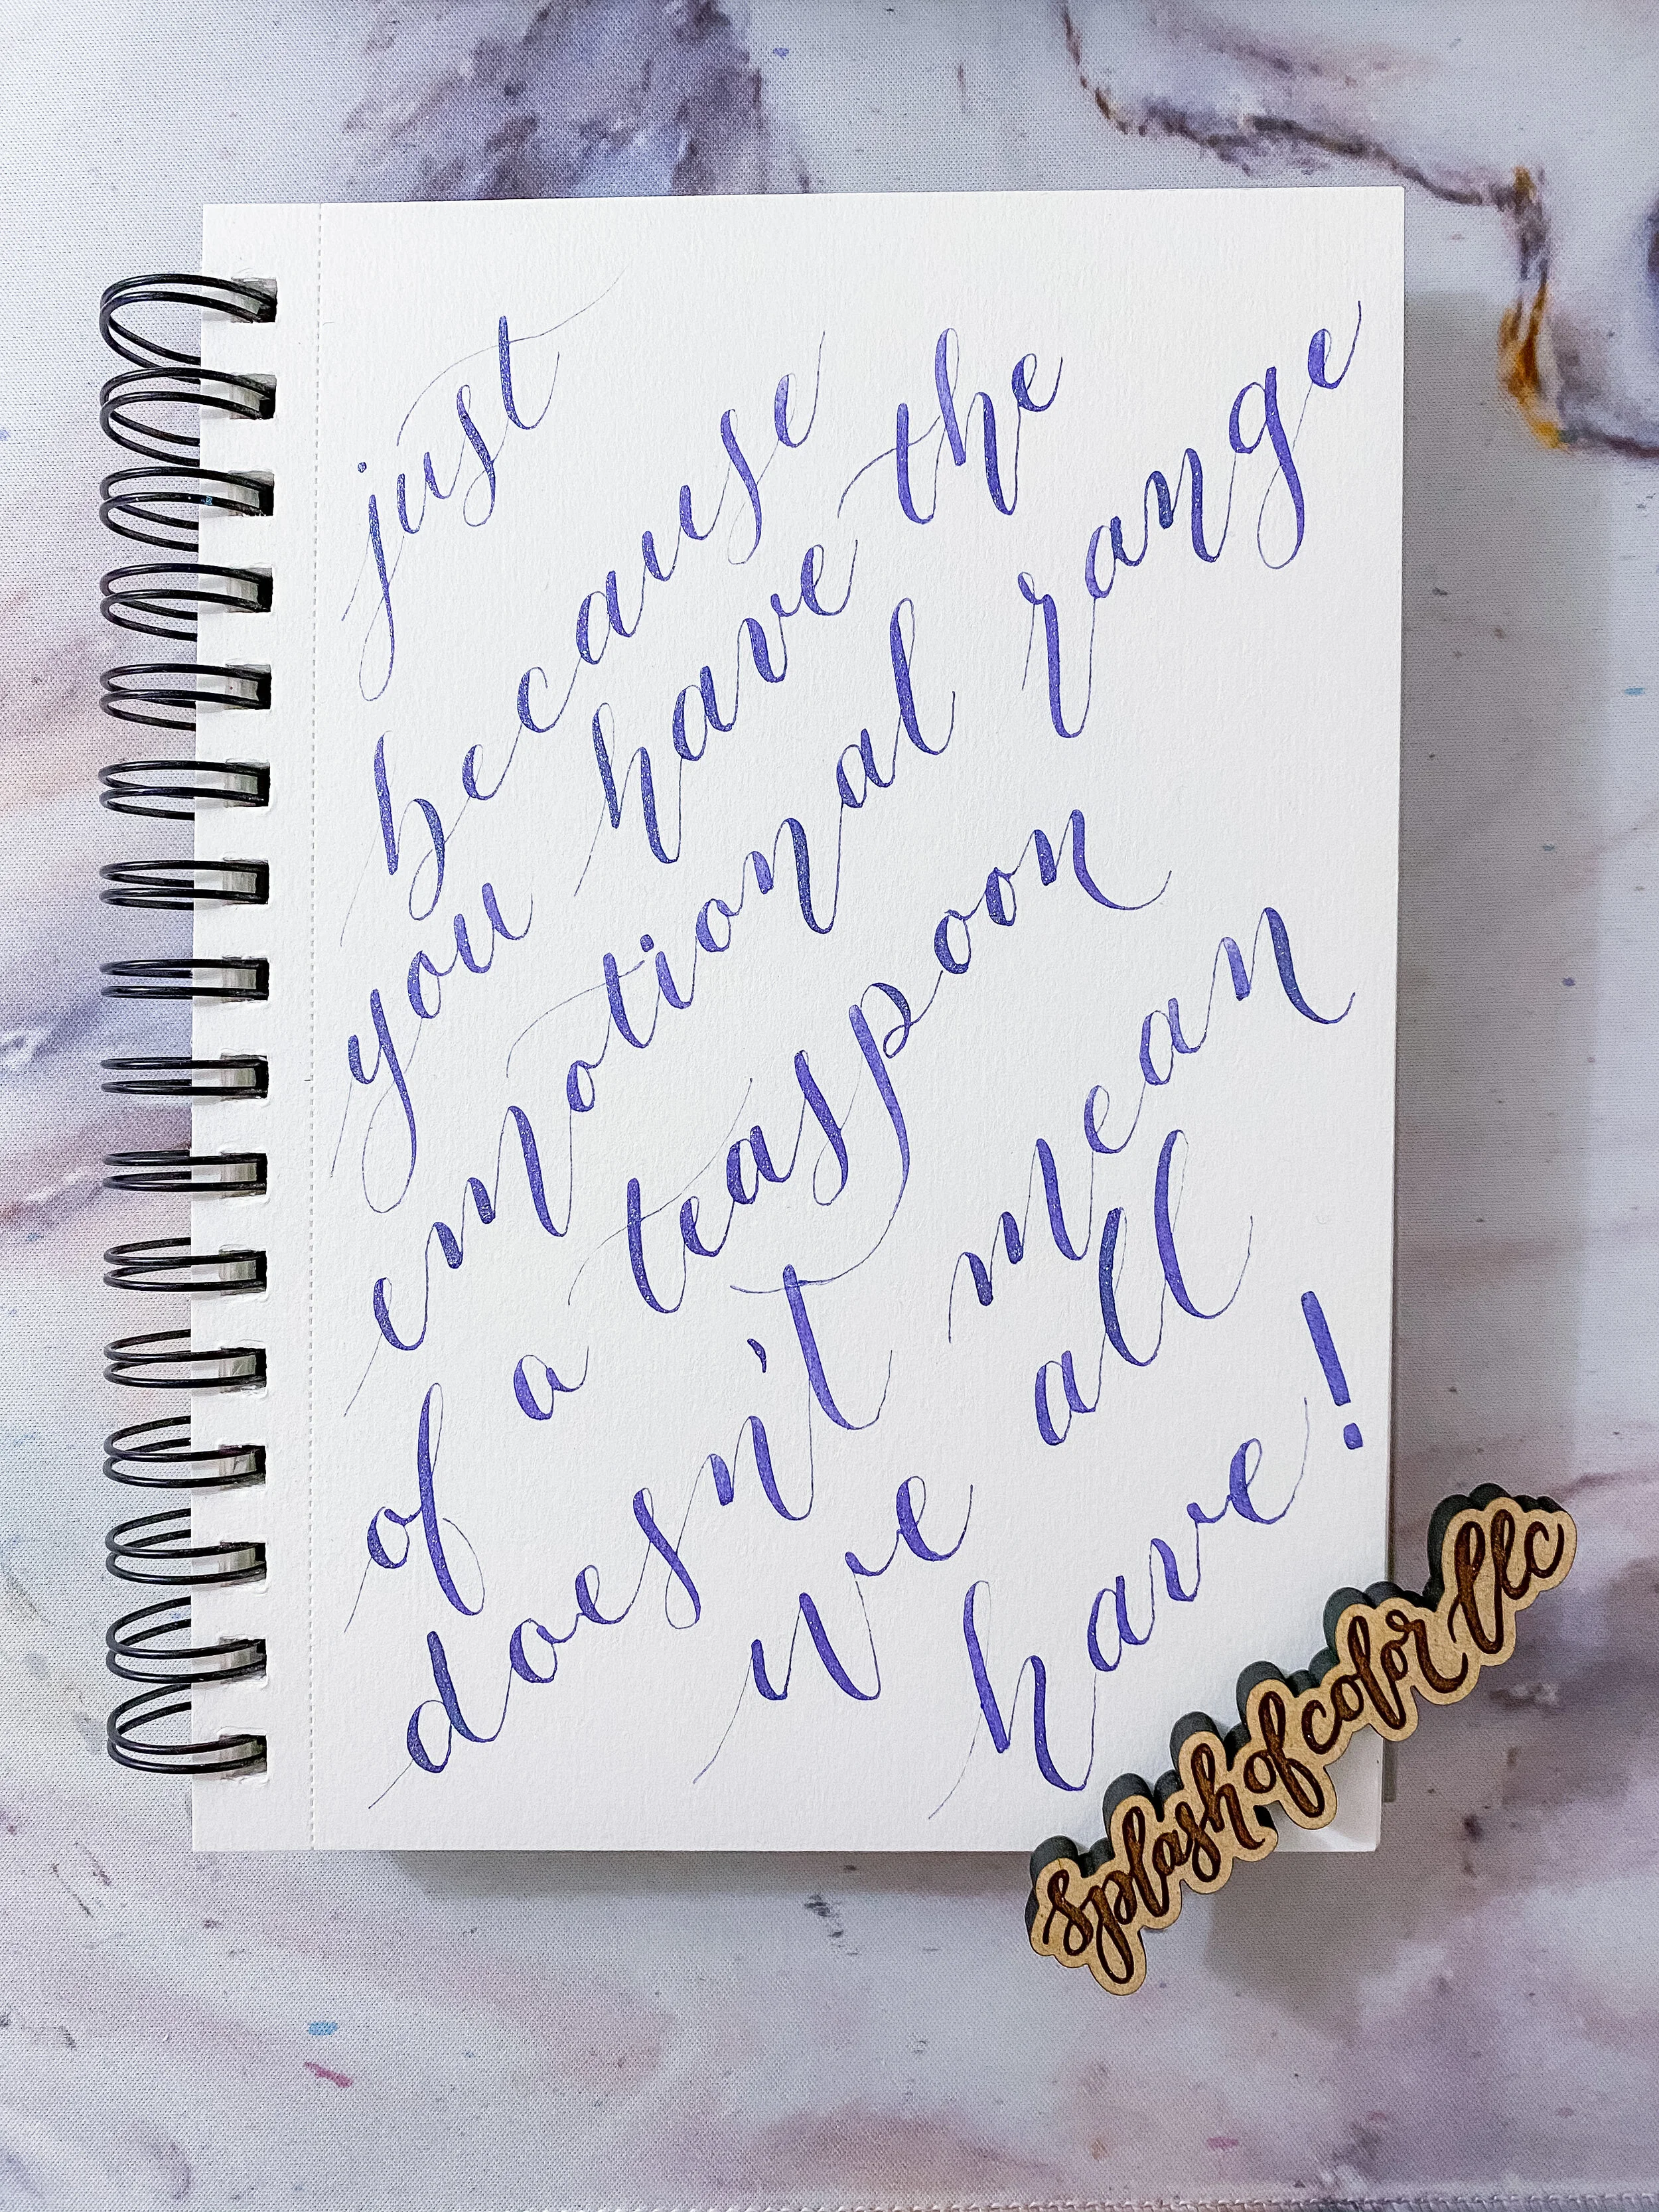 just
because
you have the
emotional range
of a teaspoon
doesn't mean
we all
have!
splash of color llc